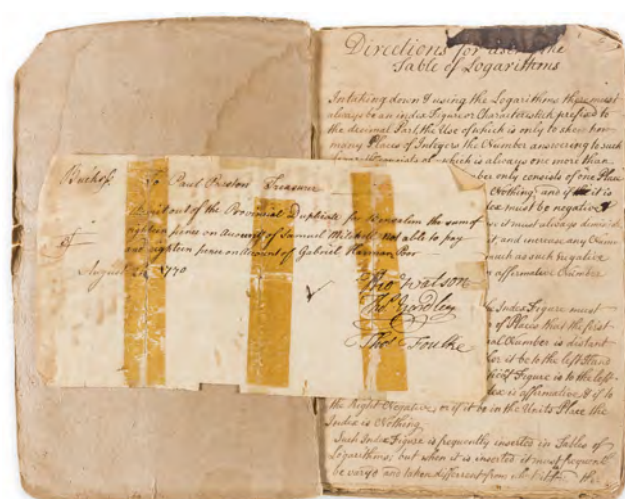 Directions for using the
Table of Logarithms
In taking down & using the Logarithms there must
always be an index Figure or Characteristick prefixed to
the decimal Part, the Use of which is only to shew how
many Places of Integers the Number answering to such
consists of, which is always one more than
ber only consists of one Place
Nothing; and if it is
dex must be negative &
it must always
it, and increase any
much as such Negative
affirmative Number
Index Figure must
of Places that the first
al Number is distant
or it be to the left Hand
Figure is to the left
dex is affirmative & if to
the Right Negative, or if it be in the Units Place the
Index is Nothing
Such Index Figure is frequently inserted in Tables of
Logarithms, but when it is inserted it must frequently
be and taken different from what the
Bucks To Paul Preston Treasurer
out of the Provincial Duplicate for Bensalem the sum of
eighteen pence on Account of Samuel Mitchell not able to pay
and eighteen pence on account of Gabriel Poor
August 1770
Tho Watson
Tho Yardley
Tho Foulke